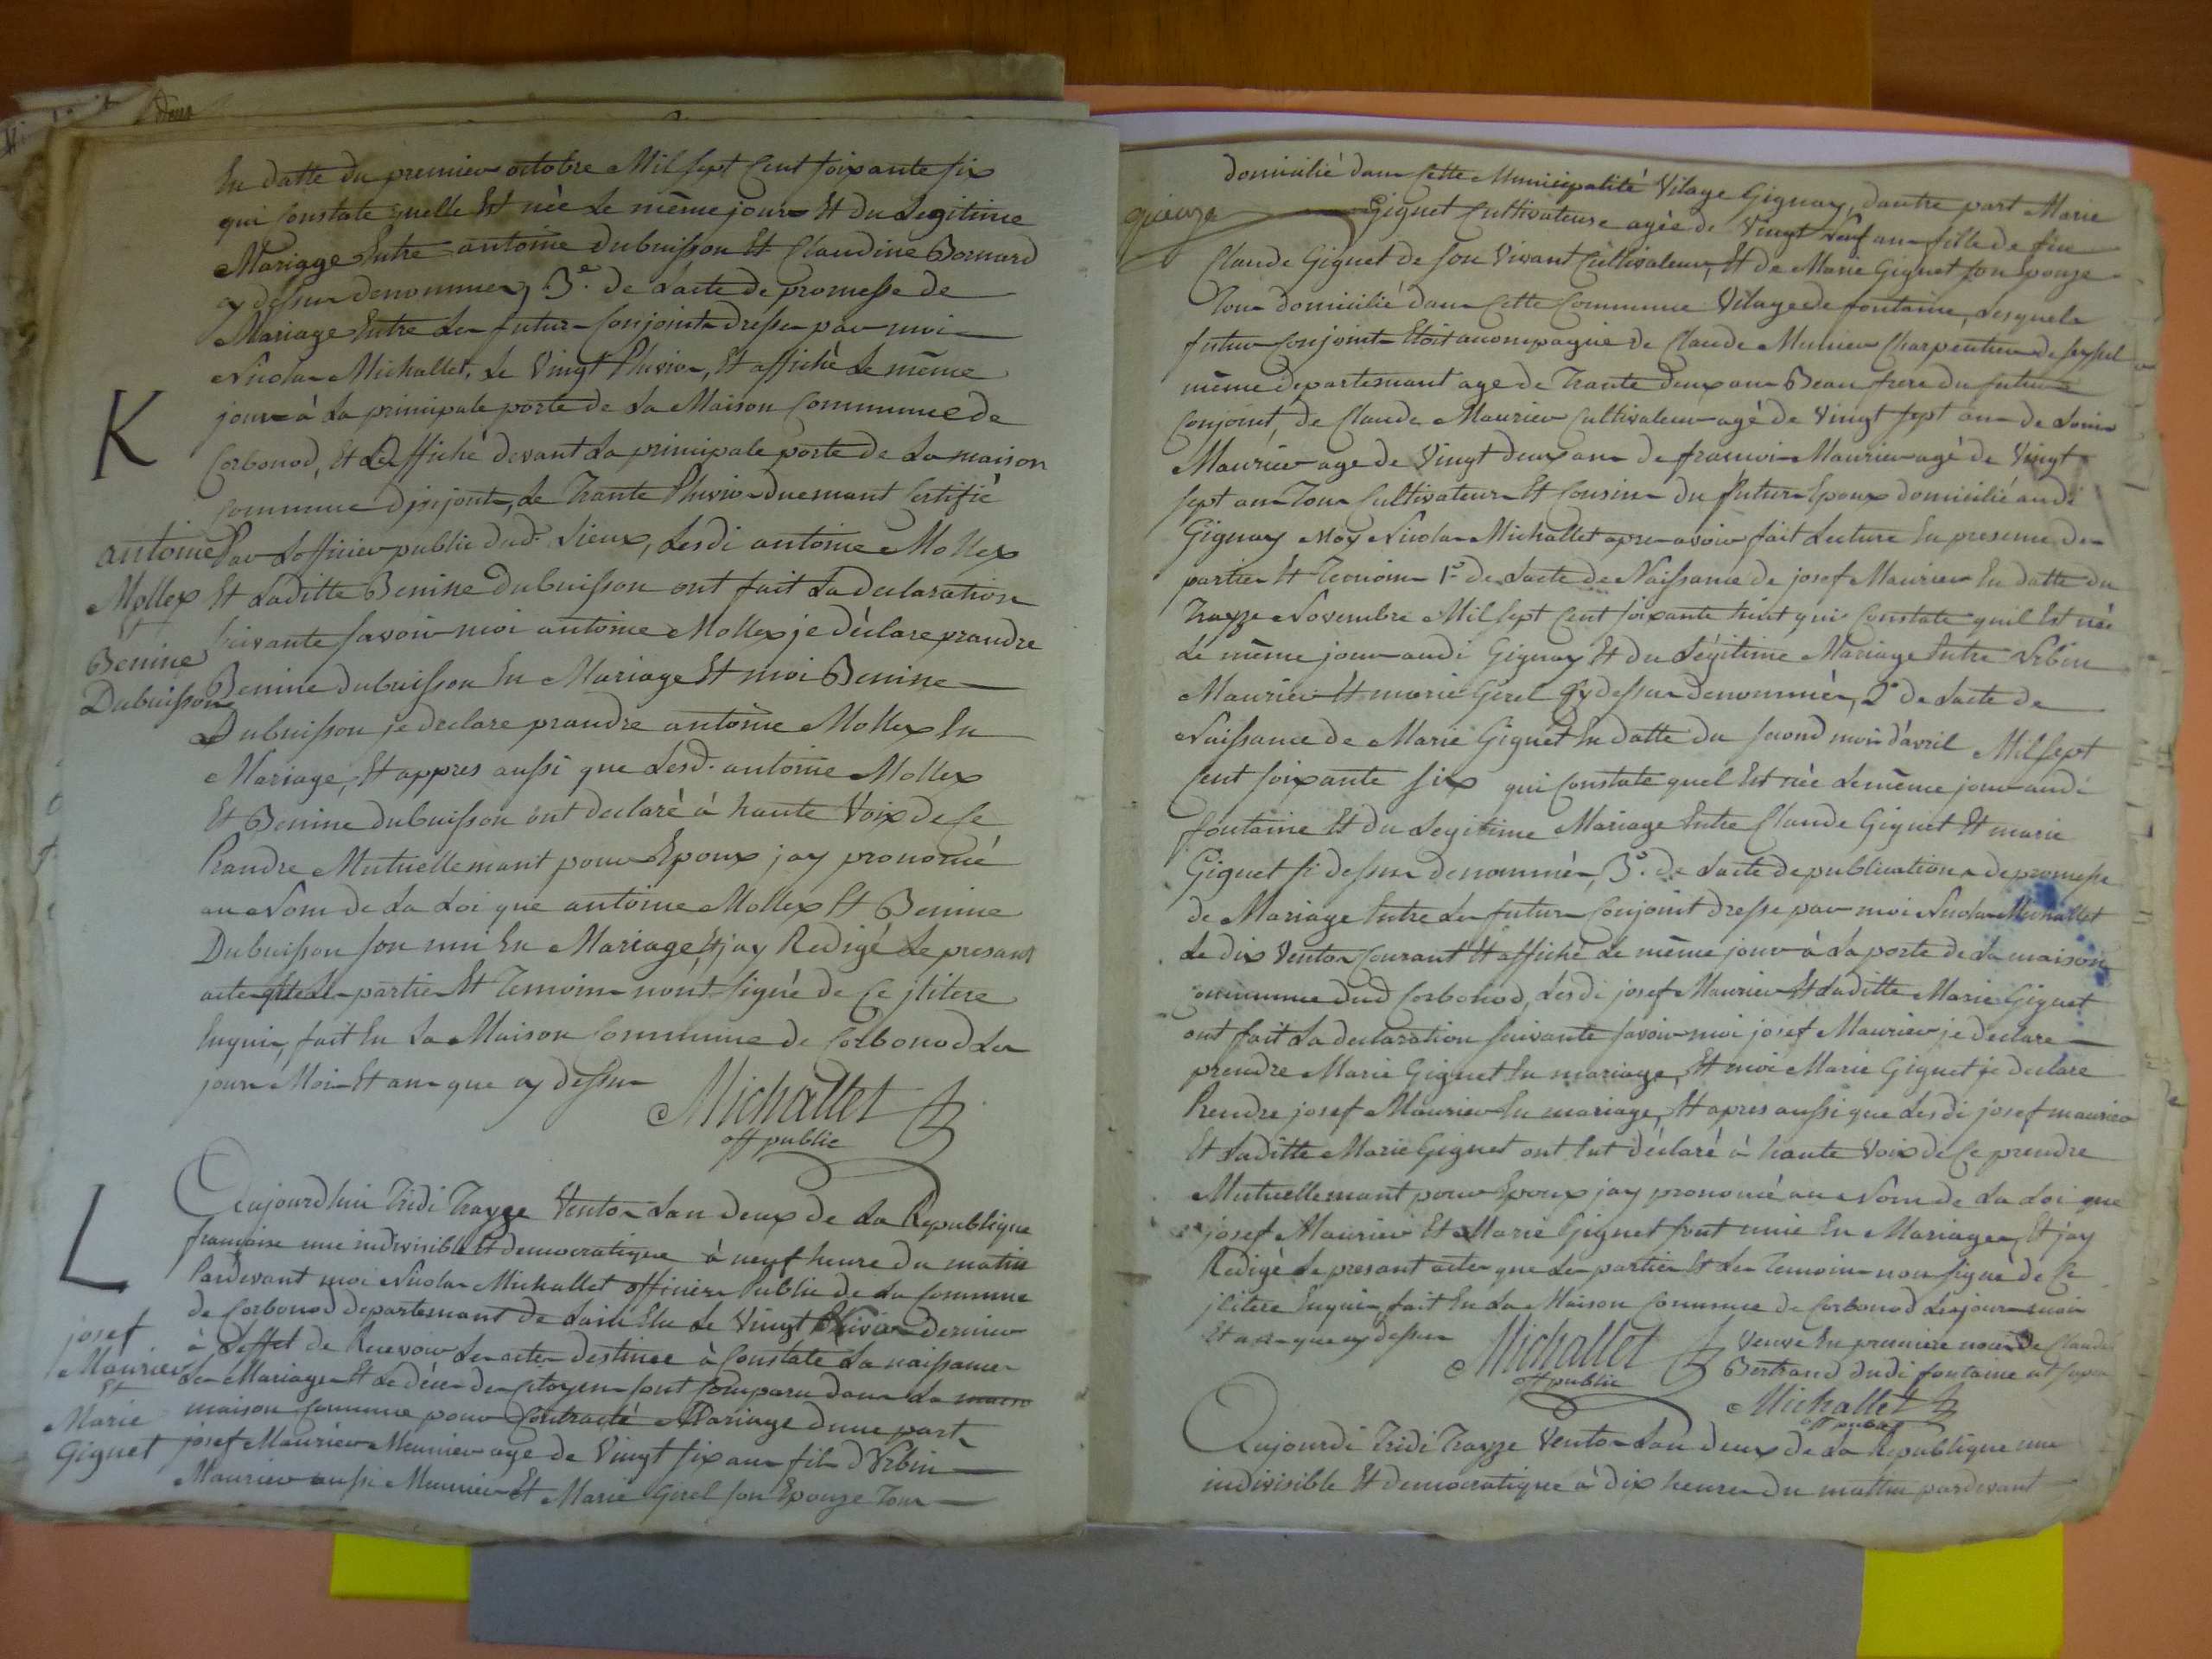 En datte du premier octobre Mil sept Cent soixante six
qui Constate quelle Est née Le même jour Et du Legitime
Mariage Entre antoine dubuisson Et Claudine Bornard
cy dessus denommez, 3.e de Lacte de promesse de
Mariage Entre Les futurs Conjoints dresser par moi
Nicolas Michallet, Le Vingt Pluvios, Et affiché Le même
jours à La principale porte de La Maison Commune de
Corbonod, Et affiché devant La principale porte de La maison
Commune Le Trante Pluvios duemant Certifié
Par Lofficier public dud. Lieux, Lesdi antoine Mollex
Et Laditte Benine Dubuisson ont fait La declaration
suivante savoir moi antoine Mollex je déclare prandre
Benine dubuisson En Mariage Et moi Benine
Dubuisson je declare prandre antoine Mollex En
Mariage, Et appres aussi que Lesd. antoine Mollex
Et Benine dubuisson ont declaré à haute Voix de se
Prandre Mutuellemant pour Epoux jay prononcé
au Nom de La Loi que antoine Mollex Et Benine
Dubuisson son uni En Mariage, Et jay Redigé Le presant
acte que Les parties Et Temoins nont signé de Ce
Enquis, fait En La Maison Commune de Corbonod Les
jours Mois Et ans que cy dessus
Michallet
off public
K
antoine
Mollex
Et
Benine
Dubuisson
Aujourdhui Tridi Trayze Ventos Lan deux de La Republique
francaise une indivisible Et democratique à neuf heure du matin
Pardevant moi Nicolas Michallet officiers Public de La Commune
de Corbonod departemant de Lain Elu Le Vingt dernier
à Leffet de Recevoir Les actes destinee à Constaté La naissances
Les Mariages Et Le décés des Citoyens sont Comparu dans La maison
maison Commune pour Contracté Mariage dune part
josef Maurier Meunier age de Vingt six ans fils dUrbin
Maurier aussi Meunier Et Marie Gerel son Epouze Tous
L
josef
Maurier
Et
Marie
Giguet
domicilié dans Cette Municipalité Vilage Gignay, dautre part Marie
Giguet Cultivateuse agée de Vingt Neuf ans fille de feu
Claude Giguet de son Vivant Cultivateur, Et de Marie Giguet son Epouze
Tous domicilié dans Cette Commune Vilage de fontaine, Lesquels
futur Conjoints Etoit accompagné de Claude Munier Charpentier de seyssel
même departemant age de Trante deux ans Beau frere du futur
Conjoint, de Claude Maurier Cultivateur agé de Vingt sept ans de Louis
Maurier age de Vingt deux ans de francois Maurier agé de Vingt
sept ans Tous Cultivateurs Et Cousins du futur Epoux domicilié audi
Gignay Moy Nicolas Michallet apres avoir fait Lecture En presence des
parties Et Temoins 1.o de Lacte de Naissance de josef Maurier En datte du
Trayze Novembre Mil sept Cent soixante huit qui Constate quil Est née
Le même jour audi Gignay Et du Légitime Mariage Entre Urbin
Maurier Et marie Gerel cy dessus denommés, 2.o de Lacte de
Naissance de Marie Giguet En datte du second mois d'avril Mil sept
Cent soixante six qui Constate quel Est née Le même jour audi
fontaine Et du Legitime Mariage Entre Claude Giguet Et marie
Giguet si dessus denommés, 3.o de Lacte de publications de promesse
de Mariage Entre Les futurs Conjoint dresse par moi Nicolas Michallet
Le dix Ventos Courant Et affiché Le même jour à La porte de La maison
Commune dud Corbonod, Lesdi josef Maurier Et Laditte Marie Giguet
ont fait La declaration suivante savoir moi josef Maurier je declare
prendre Marie Giguet En mariage, Et moi Marie Giguet je declare
Prendre josef Maurier En mariage, Et apres aussi que Lesdi josef maurier
Et Laditte Marie Giguet ont Eut déclaré à haute Voix de se prendre
Mutuellemant pour Epoux jay prononcé au Nom de La Loi que
josef Maurier Et Marie Giguet sont unie En Mariages, Et jay
Redigé Le presant actes que Les parties Et Les Temoins non signé de Ce
Enquis fait En La Maison Commune de Corbonod Les jours mois
Et ans que cy dessus
Michallet
off public
Veuve En premiere noces de Claude
Bertrand dudi fontaine
Michallet
off public
Aujourdi Tridi Trayze Ventos Lan deux de La Republique une
indivisible Et democratique à dix heures du mattin pardevant